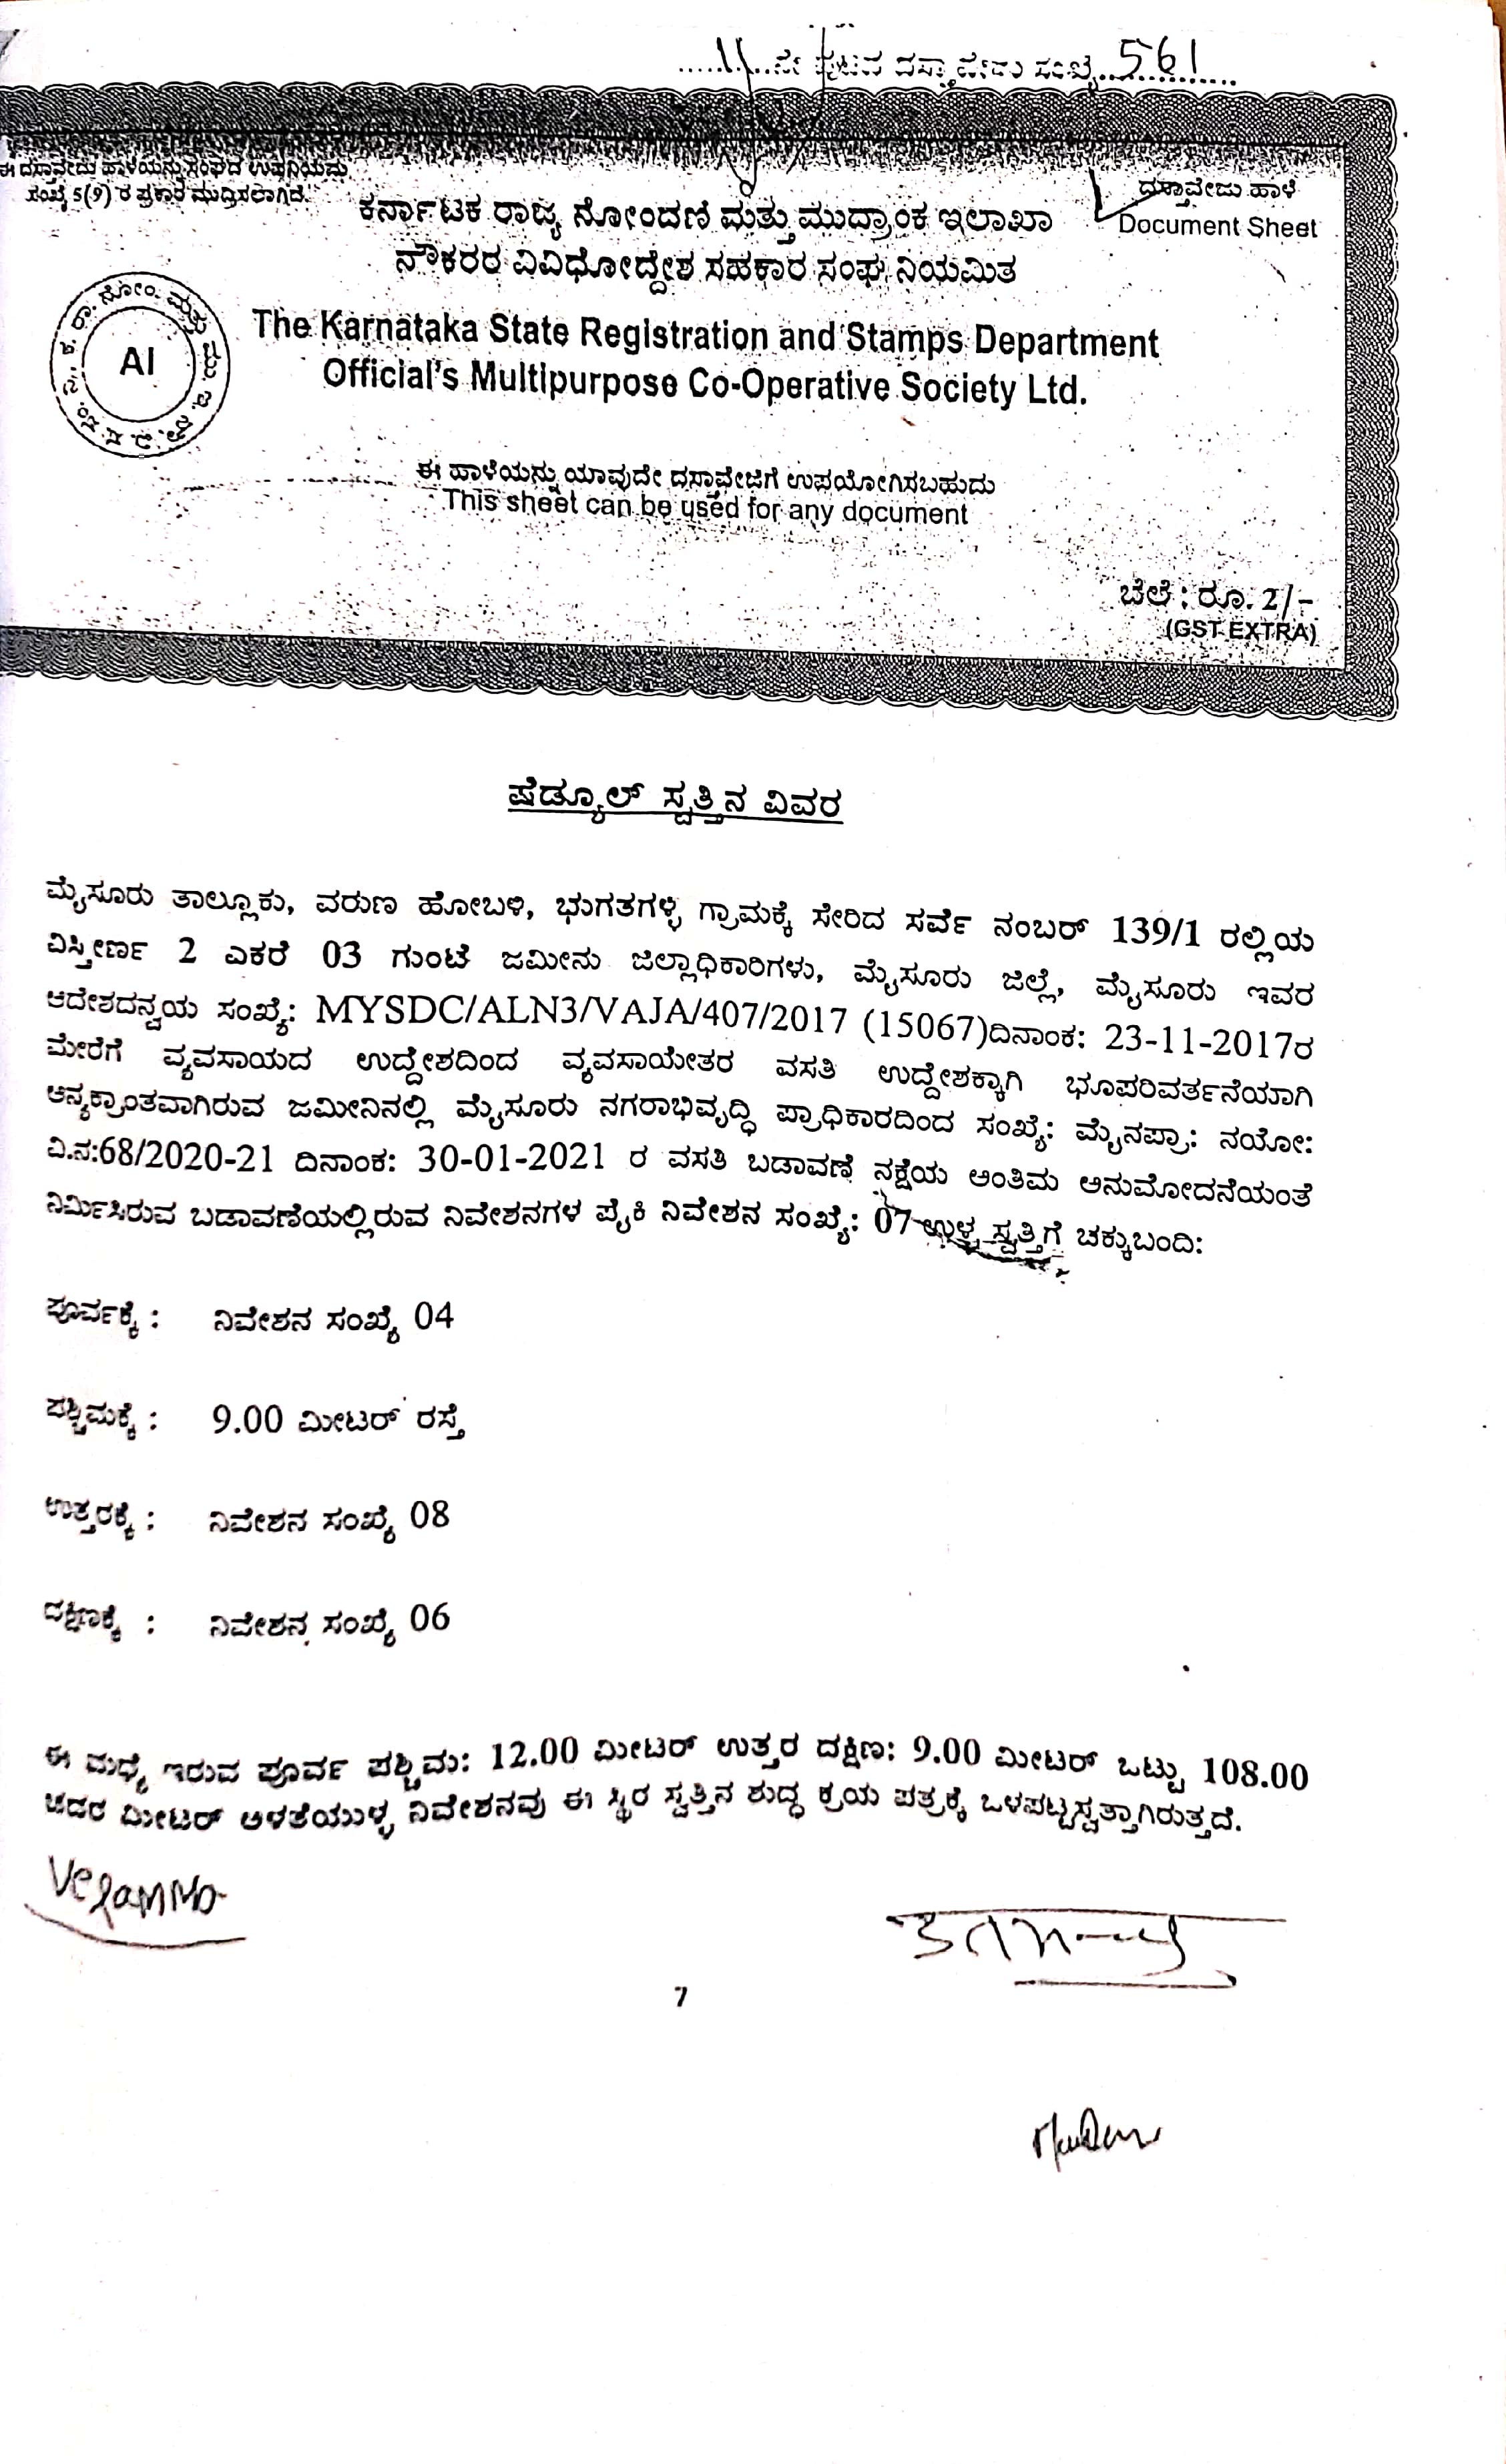 11 ನೇ ಪುಟದ ದಸ್ತಾವೇಜು ಸಂಖ್ಯೆ 561
ಈ ದಸ್ತಾವೇಜು ಹಾಳೆಯನ್ನು ಸಂಘದ ಉಪನಿಯಮ
ಸಂಖ್ಯೆ 5(9) ರ ಪ್ರಕಾರ ಮುದ್ರಿಸಲಾಗಿದೆ.
ದಸ್ತಾವೇಜು ಹಾಳೆ
Document Sheet
ಕರ್ನಾಟಕ ರಾಜ್ಯ ನೋಂದಣಿ ಮತ್ತು ಮುದ್ರಾಂಕ ಇಲಾಖಾ
ನೌಕರರ ವಿವಿಧೋದ್ದೇಶ ಸಹಕಾರ ಸಂಘ ನಿಯಮಿತ
AI
The Karnataka State Registration and Stamps Department
Official's Multipurpose Co-Operative Society Ltd.
ಈ ಹಾಳೆಯನ್ನು ಯಾವುದೇ ದಸ್ತಾವೇಜಿಗೆ ಉಪಯೋಗಿಸಬಹುದು
This sheet can be used for any document
ಬೆಲೆ : ರೂ. 2/-
(GST EXTRA)
ಷೆಡ್ಯೂಲ್ ಸ್ವತ್ತಿನ ವಿವರ
ಮೈಸೂರು ತಾಲ್ಲೂಕು, ವರುಣ ಹೋಬಳಿ, ಭುಗತಗಳ್ಳಿ ಗ್ರಾಮಕ್ಕೆ ಸೇರಿದ ಸರ್ವೆ ನಂಬರ್ 139/1 ರಲ್ಲಿಯ
ವಿಸ್ತೀರ್ಣ 2 ಎಕರೆ 03 ಗುಂಟೆ ಜಮೀನು ಜಿಲ್ಲಾಧಿಕಾರಿಗಳು, ಮೈಸೂರು ಜಿಲ್ಲೆ, ಮೈಸೂರು ಇವರ
ಆದೇಶದನ್ವಯ ಸಂಖ್ಯೆ: MYSDC/ALN3/VAJA/407/2017 (15067)ದಿನಾಂಕ: 23-11-2017ರ
ಮೇರೆಗೆ ವ್ಯವಸಾಯದ ಉದ್ದೇಶದಿಂದ ವ್ಯವಸಾಯೇತರ ವಸತಿ ಉದ್ದೇಶಕ್ಕಾಗಿ ಭೂಪರಿವರ್ತನೆಯಾಗಿ
ಅನ್ಯಕ್ರಾಂತವಾಗಿರುವ ಜಮೀನಿನಲ್ಲಿ ಮೈಸೂರು ನಗರಾಭಿವೃದ್ಧಿ ಪ್ರಾಧಿಕಾರದಿಂದ ಸಂಖ್ಯೆ: ಮೈನಪ್ರಾ: ನಯೋ:
ವಿ.ನ:68/2020-21 ದಿನಾಂಕ: 30-01-2021 ರ ವಸತಿ ಬಡಾವಣೆ ನಕ್ಷೆಯ ಅಂತಿಮ ಅನುಮೋದನೆಯಂತೆ
ನಿರ್ಮಿಸಿರುವ ಬಡಾವಣೆಯಲ್ಲಿರುವ ನಿವೇಶನಗಳ ಪೈಕಿ ನಿವೇಶನ ಸಂಖ್ಯೆ: 07 ಉಳ್ಳ ಸ್ವತ್ತಿಗೆ ಚಕ್ಕುಬಂದಿ:
ಪೂರ್ವಕ್ಕೆ : ನಿವೇಶನ ಸಂಖ್ಯೆ 04
ಪಶ್ಚಿಮಕ್ಕೆ : 9.00 ಮೀಟರ್ ರಸ್ತೆ
ಉತ್ತರಕ್ಕೆ : ನಿವೇಶನ ಸಂಖ್ಯೆ 08
ದಕ್ಷಿಣಕ್ಕೆ : ನಿವೇಶನ ಸಂಖ್ಯೆ 06
ಈ ಮಧ್ಯೆ ಇರುವ ಪೂರ್ವ ಪಶ್ಚಿಮ: 12.00 ಮೀಟರ್ ಉತ್ತರ ದಕ್ಷಿಣ: 9.00 ಮೀಟರ್ ಒಟ್ಟು 108.00
ಚದರ ಮೀಟರ್ ಅಳತೆಯುಳ್ಳ ನಿವೇಶನವು ಈ ಸ್ಥಿರ ಸ್ವತ್ತಿನ ಶುದ್ಧ ಕ್ರಯ ಪತ್ರಕ್ಕೆ ಒಳಪಟ್ಟಸ್ವತ್ತಾಗಿರುತ್ತದೆ.
7